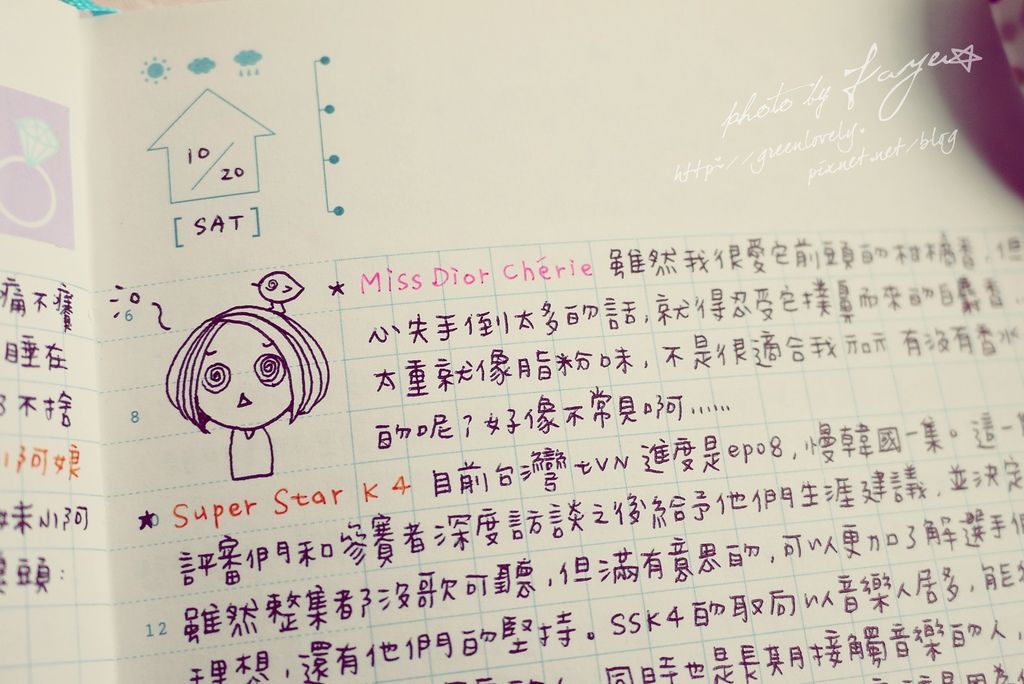 photo by Faye
http://greenlovely.
pixnet.net/blog
10/20
[SAT]
6
8
12
★ Miss Dior Chérie 雖然我很愛它前頭的柑橘香，但
心失手倒太多的話，就得忍受它撲鼻而來的白麝香，
太重就像脂粉味，不是很適合我 有沒有香水
的呢？好像不常見啊……
★ Super Star K4 目前台灣tVN進度是ep08，慢韓國一集。這一
評審們和參賽者深度訪談之後給予他們生涯建議，並決定
雖然整集都沒歌可聽，但滿有意思的，可以更加了解選手們
理想，還有他們的堅持。SSK4的取向以音樂人居多，能
同時也是長期接觸音樂的人，
痛不癢
睡在
不捨
阿娘
妹小阿
頭：